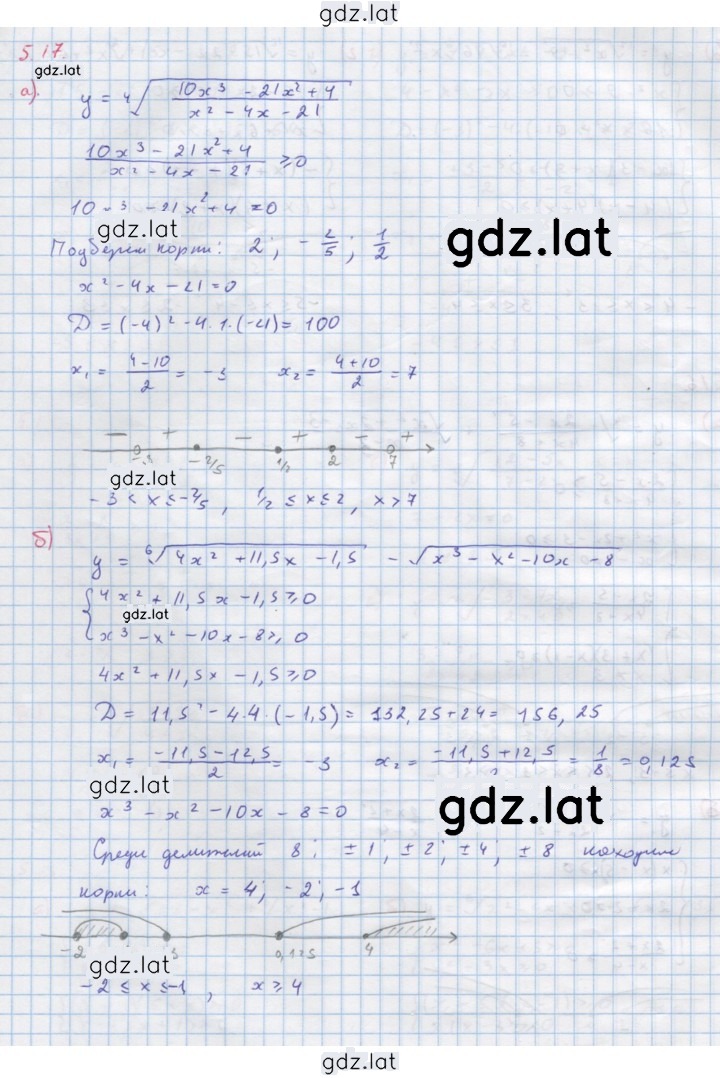 gdz.lat
5.17.
gdz.lat
а)
y = ⁴√((10x³ - 21x² + 4)/(x² - 4x - 21))
(10x³ - 21x² + 4)/(x² - 4x - 21) ≥ 0
10 - 3 - 21x² + 4 = 0
gdz.lat
Подберем корни: 2; -2/5; 1/2
gdz.lat
x² - 4x - 21 = 0
D = (-4)² - 4·1·(-21) = 100
x₁ = (4-10)/2 = -3 x₂ = (4+10)/2 = 7
- + - + - +
-3 -2/5 1/2 2 7
gdz.lat
-3 < x ≤ -2/5, 1/2 ≤ x ≤ 2, x > 7
б)
y = ⁶√(4x² + 11,5x - 1,5) - √(x³ - x² - 10x - 8)
{ 4x² + 11,5x - 1,5 ≥ 0
gdz.lat
x³ - x² - 10x - 8 ≥ 0
4x² + 11,5x - 1,5 ≥ 0
D = 11,5² - 4·4·(-1,5) = 132,25 + 24 = 156,25
x₁ = (-11,5-12,5)/2 = -3 x₂ = (-11,5+12,5)/ = 1/8 = 0,125
gdz.lat
x³ - x² - 10x - 8 = 0
gdz.lat
Среди делителей 8; ±1; ±2; ±4; ±8 находим
корни: x = 4; -2; -1
-2 0,125 4
gdz.lat
-2 ≤ x ≤ -1, x ≥ 4
gdz.lat